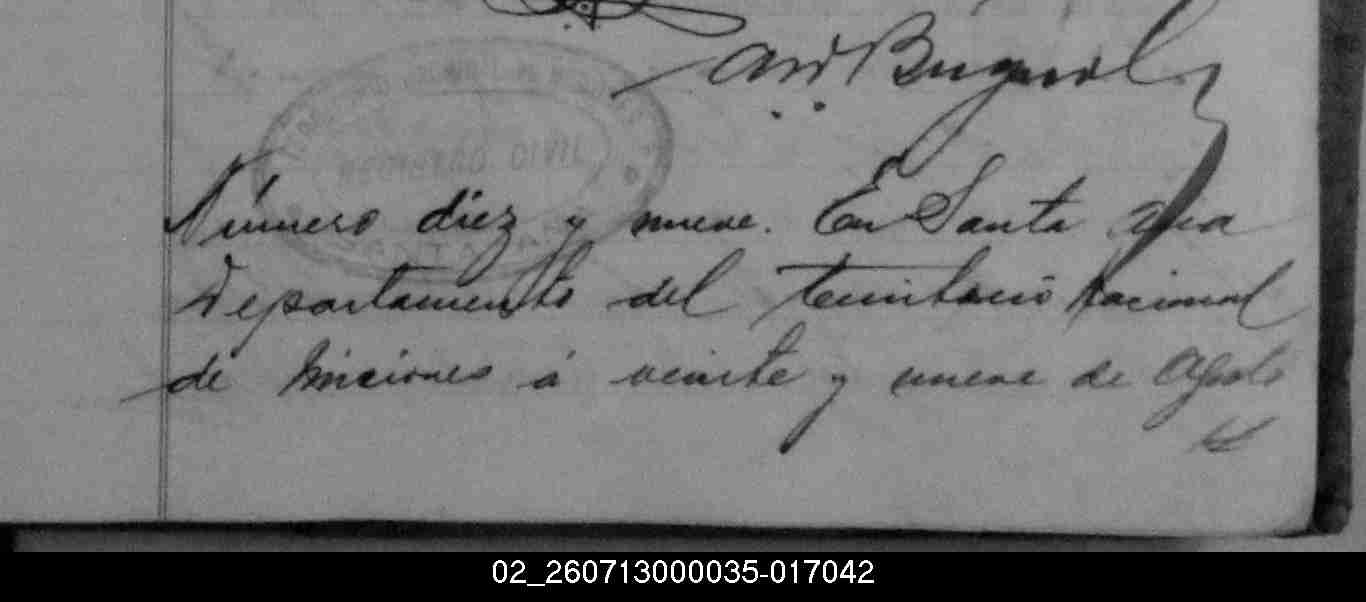 REGISTRO CIVIL
Número diez y nueve. En Santa Ana
Departamento del territorio nacional
de Misiones á veinte y nueve de Agosto
02_260713000035-017042